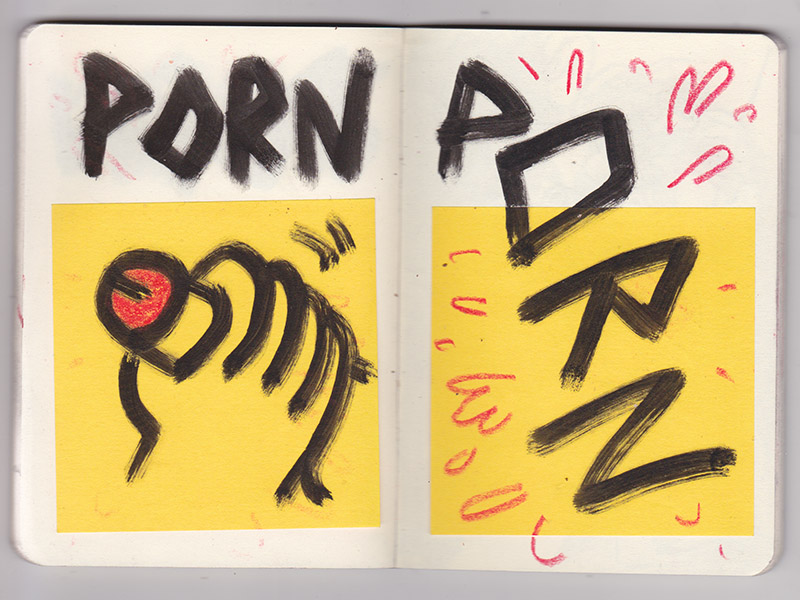 PORN
PORN